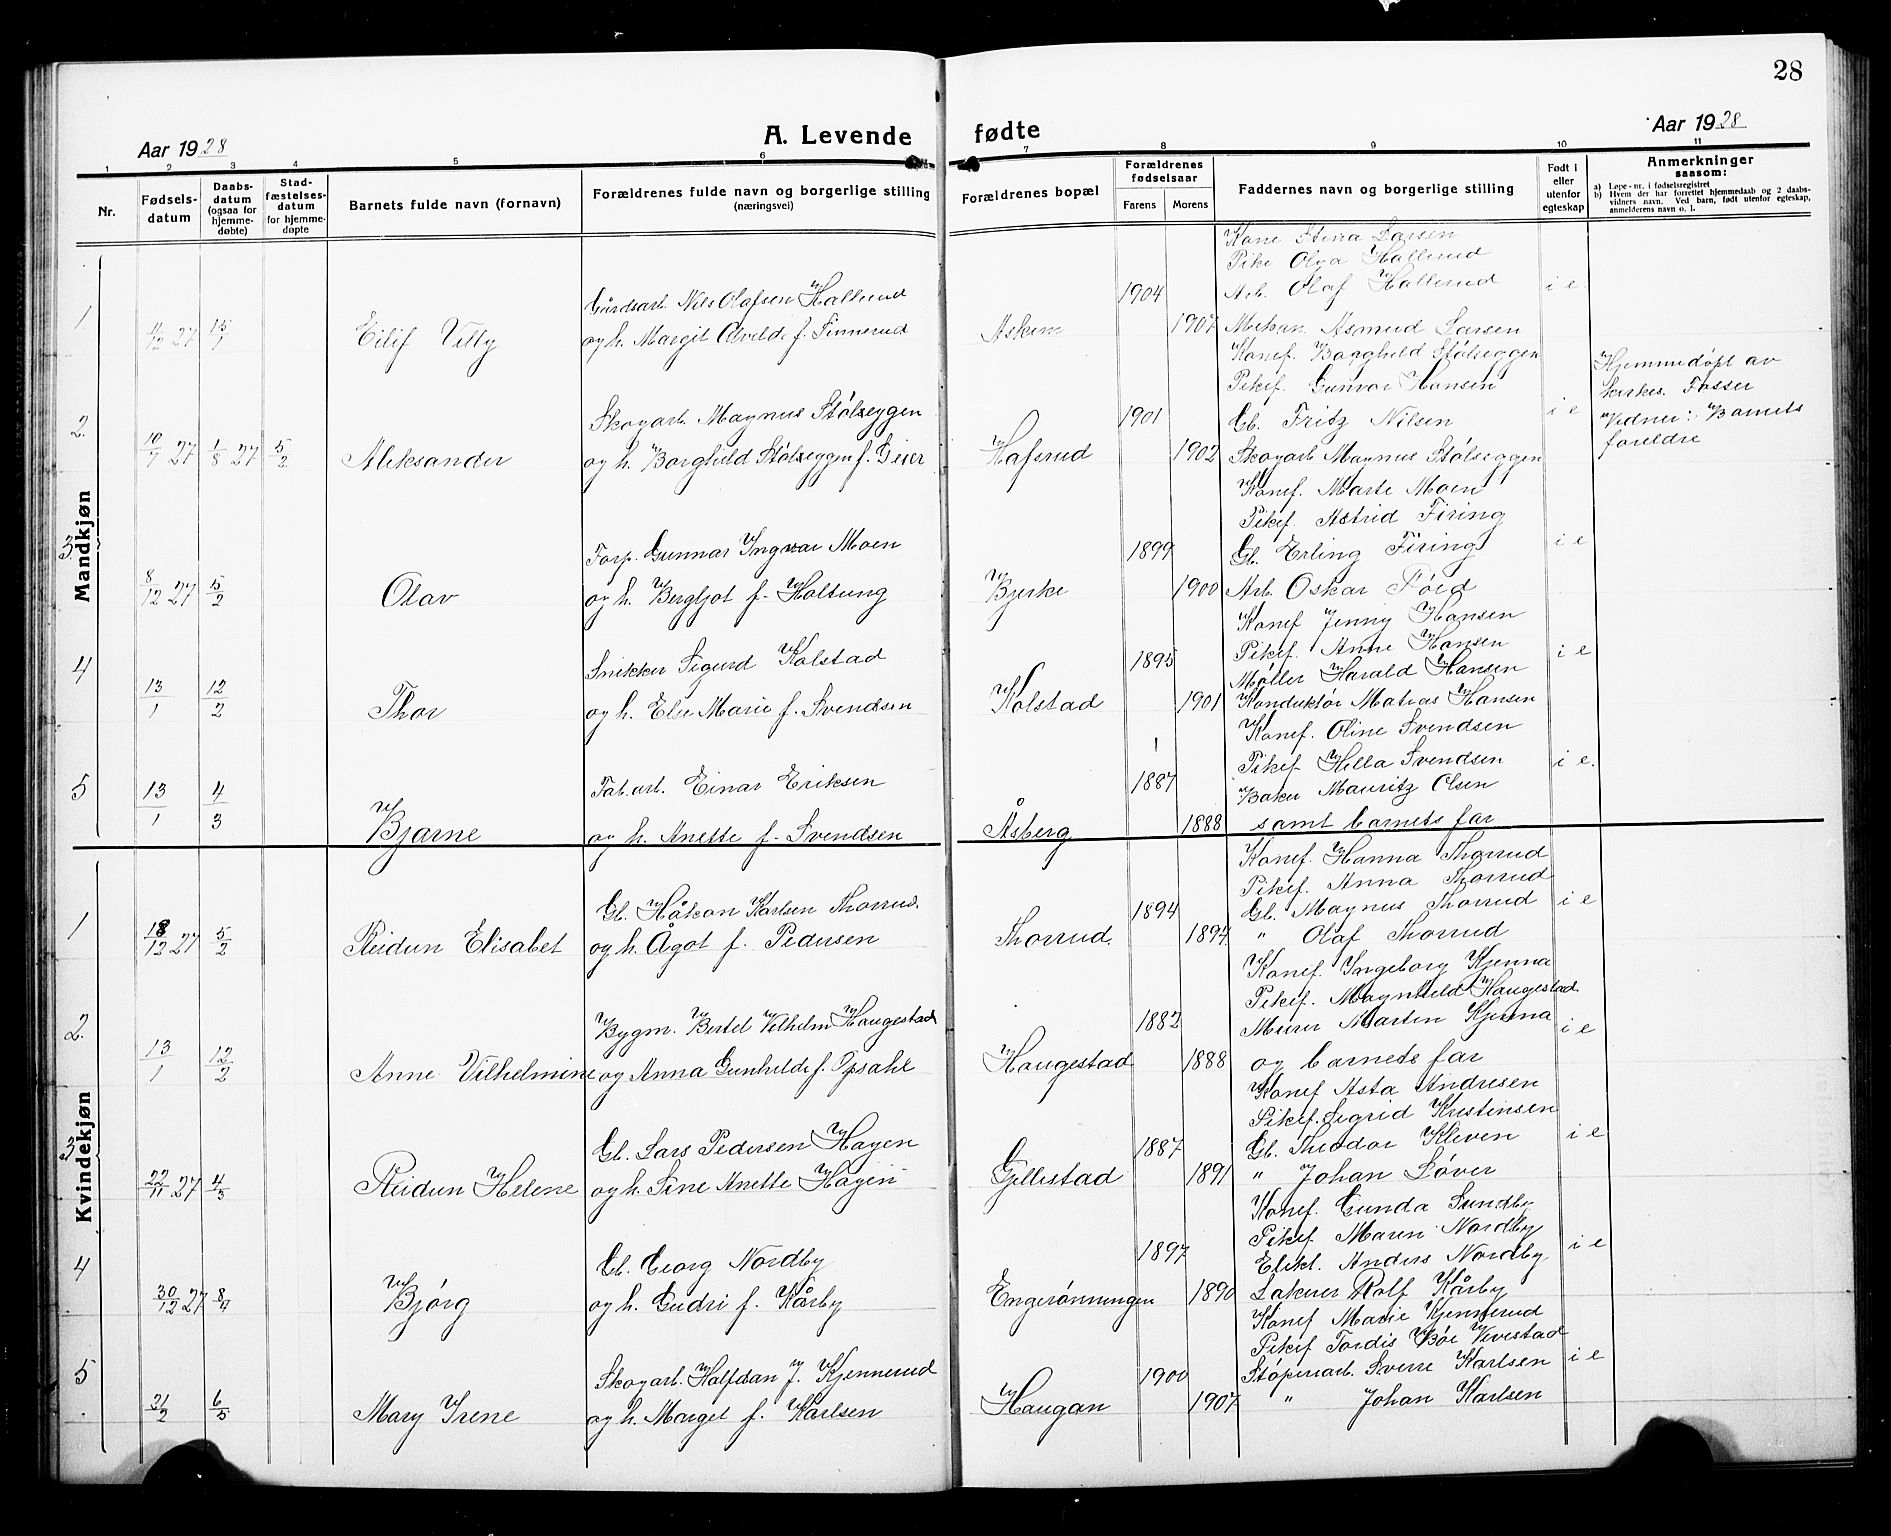 28
Aar 1928
A. Levende fødte
Aar 1928
1 2 3 4 5 6 7 8 9 10 11
Nr.
Fødsels-
datum
Daabs-
datum
(ogsaa for
hjemme-
døbte)
Stad-
fæstelses-
datum
for hjemme-
døpte
Barnets fulde navn (fornavn)
Forældrenes fulde navn og borgerlige stilling
(næringsvei)
Forældrenes bopæl
Forældrenes
fødselsaar
Farens Morens
Faddernes navn og borgerlige stilling
Født i
eller
utenfor
egteskap
Anmerkninger
saasom:
a) Løpe-nr. i fødselsregistret
b) Hvem der har forrettet hjemmedaab og 2 daabs-
vidners navn. Ved barn, født utenfor egteskap,
anmelderens navn o. l.
Mandkjøn
1.
27 15/1
Eilif Villy
Gårdsarb. Nils Olafsen Hallerud
og h. Margit Alvilde f. Finnerud
Askim
1904
1907
Kone Stina Larsen
Pike Olga Hallerud
Arb. Olaf Hallerud
Mekan. Asmud Larsen
i e
2.
10/7 27 1/8 27 5/2
Aleksander
Skogarb. Magnus Stölseggen
og h. Borghild Stölseggen f. Geier
Hafsrud
1901
1902
Konef. Borghild Stölseggen
Pikef. Gunvor Hansen
Gb. Fritz Nilsen
Skogarb Magnus Stölseggen
i e
Hjemmedøpt av
kirkes. Fosser
Vidner: Barnets
foreldre
3
8/12 27 5/2
Olav
Forp. Gunnar Yngvar Moen
og h. Bergljot f. Holtung
Bjerke
1899
1900
Konef. Marte Moen
Pikef. Astrid Firing
Gb. Erling Firing
Arb. Oskar Föed
i e
4
13/1 12/2
Thor
Snikker Sigurd Kolstad
og h. Else Marie f. Svendsen
Kolstad
1895
1901
Konef Jenny Hansen
Pikef. Anne Hansen
Møller Harald Hansen
Konduktør Matias Hansen
i e
5
13/1 4/3
Bjarne
Fab.arb. Einar Eriksen
og h. Anette f. Svendsen
Åsberg
1887
1888
Konef. Oline Svendsen
Pikef. Hilla Svendsen
Baker Mauritz Olsen
samt barnets far
i e.
Kvindekjøn
1
18/12 27 5/2
Reidun Elisabet
Gb. Håkon Karlsen Thorrud.
og h. Ågot f. Pedersen
Thorrud.
1894
1894
Konef. Hanna Thorrud
Pikef. Anna Thorrud
Gb. Magnus Thorrud
" Olaf Thorrud
i e
2.
13/1 12/2
Anne Vilhelmine
Bygm. Bertel Vilhelm Haugestad
og Anna Gunhilde f. Opsahl
Haugestad
1882
1888
Konef. Ingeborg Kjenna
Pikef. Magnhild Haugestad
Murer Marten Kjenna
og barnets far
i e
3
22/11 27 4/3
Reidun Helene
Gb. Lars Pedersen Hagen
og h. Sine Anette Hagen
Gillestad
1887
1891
Konef Asta Andresen
Pikef. Sigrid Kristinsen
Gb. Theodor Kleven
" Johan Løver
i e
4
30/12 27 8/4
Bjørg
Gb. Georg Nordby
og h. Gudri f. Kårby
Engerönningen
1897
1890
Konef. Gunda Sundby
Pikef Maren Nordby
Elekt. Anders Nordby
Lakerer Rolf Kårby
i e
5
21/2 6/5
Mary Irene
Skogarb. Halfdan J. Kjennerud
og h. Marget f. Karlsen
Haugan
1900
1907
Konef Marie Kjennerud
Pikef Tordis Böe Vivestad
Støperiarb. Sverre Karlsen
" Johan Karlsen
i e